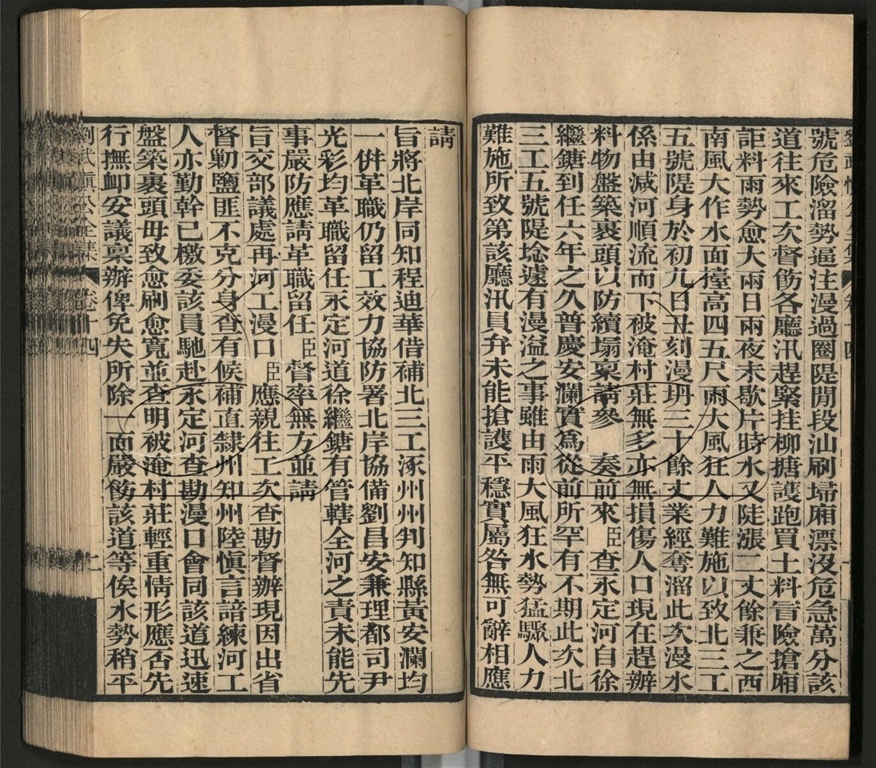 號危險溜勢逼注漫過圈隄閒段汕刷埽廂漂沒危急萬分該
道往來工次督飭各廳汛趕緊挂柳搪護跑買土料冒險搶廂
詎料雨勢愈大兩日兩夜未歇片時水又陡漲二丈餘兼之西
南風大作水面擡高四五尺雨大風狂人力難施以致北三工
五號隄身於初九日丑刻漫坍三十餘丈業經奪溜此次漫水
係由減河順流而下被淹村莊無多亦無損傷人口現在趕辦
料物盤築裹頭以防續塌稟請參奏前來臣查永定河自徐
繼鏞到任六年之久普慶安瀾實為從前所罕有不期此次北
三工五號隄埝遽有漫溢之事雖由雨大風狂水勢猛驟人力
難施所致第該廳汛員弁未能搶護平穩實屬咎無可辭相應
請
旨將北岸同知程迪華借補北三工涿州州判知縣黃安瀾均
一併革職仍留工效力協防署北岸協備劉昌安兼理都司尹
光彩均革職留任永定河道徐繼鏞有管轄全河之責未能先
事嚴防應請革職留任臣督率無方並請
旨交部議處再河工漫口臣應親往工次查勘督辦現因出省
督勦鹽匪不克分身查有候補直隸州知州陸慎言諳練河工
人亦勤幹已檄委該員馳赴永定河查勘漫口會同該道迅速
盤築裹頭毋致愈刷愈寬並查明被淹村莊輕重情形應否先
行撫卹妥議稟辦俾免失所除一面嚴飭該道等俟水勢稍平
劉武慎公全集 卷十四